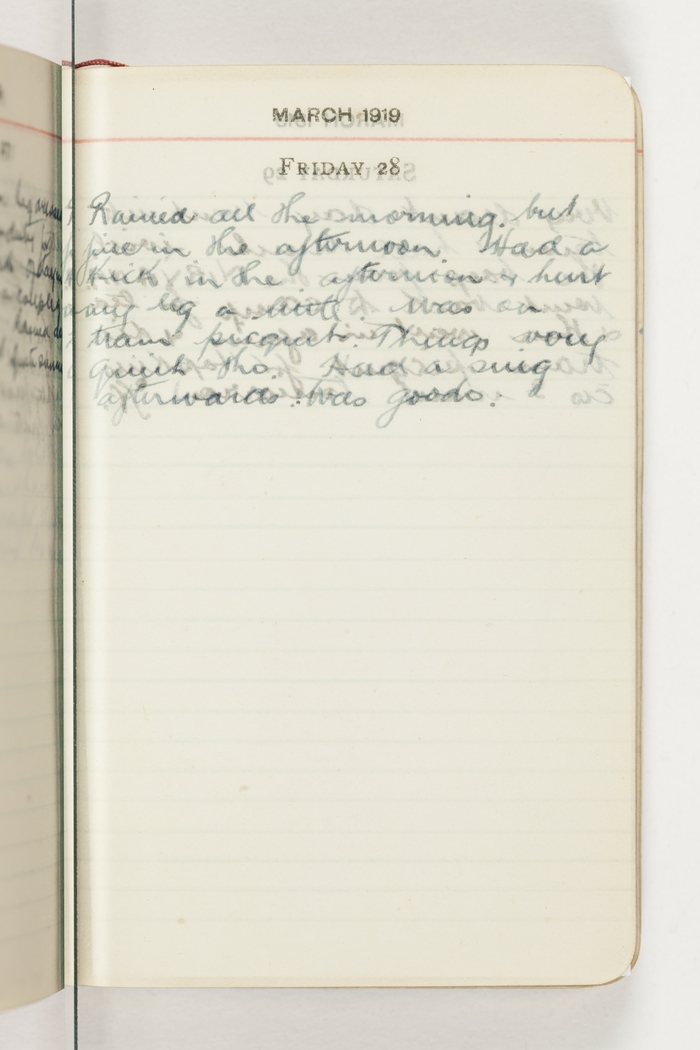 MARCH 1919
FRIDAY 28
Rained all the morning. but
fine in the afternoon. Had a
kick in the afternoon & hurt
my leg a bit. Was on
train picquet. Things very
quiet tho. Had a sing
afterwards. Was good.